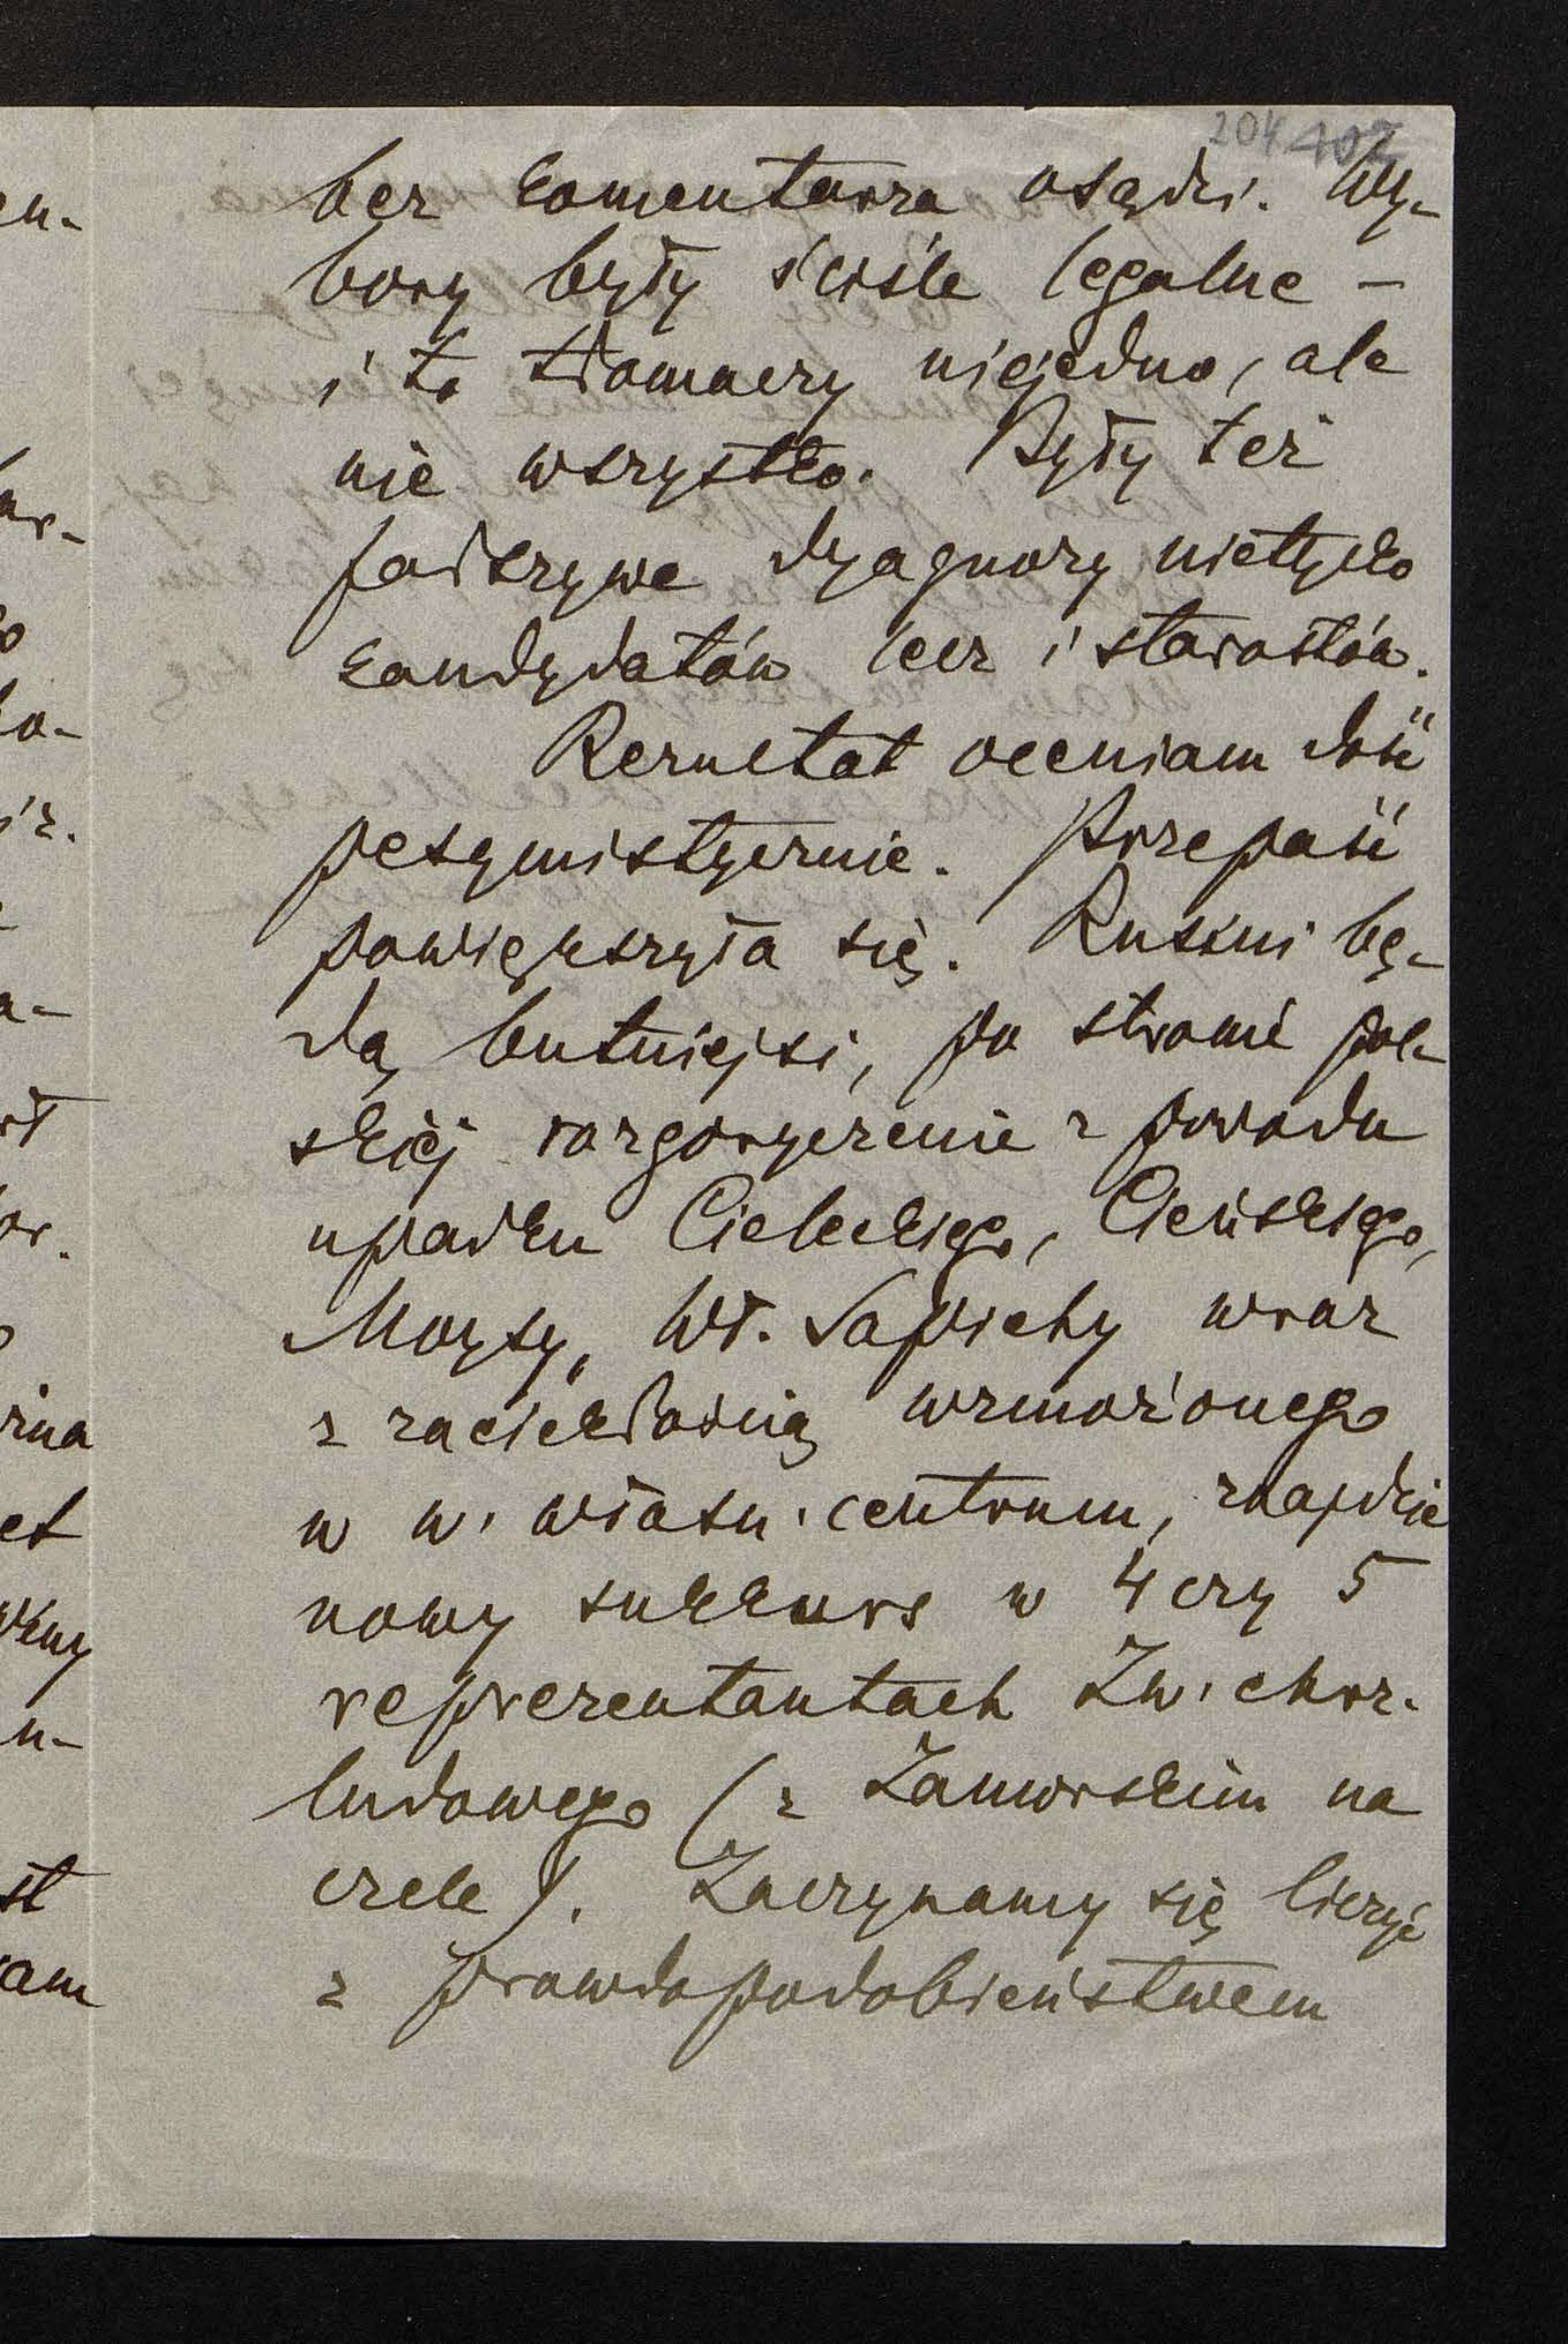 204 402
bez komentarza osądzi. Wy-
bory były ściśle legalne –
i to tłomaczy niejedno, ale
nie wszystko. Były też
fałszywe dyagnozy nietylko
kandydatów lecz i starostów.
Rezultat oceniam dość
pesymistycznie. Przepaść
powiększyła się. Ruskini bę-
dą butniejsi, po stronie pol-
skiej rozgoryczenie z powodu
upadku Cieleckiego, Cieńskiego,
Moysy, Wł. Sapiehy wraz
z zaciekłością wzmożonego
w w. własn. centrum, znajdzie
nowy sukkurs w 4 czy 5
reprezentantach Zw. chrz.
ludowego (z Zamorskim na
czele). Zaczynamy się liczyć
z prawdopodobieństwem